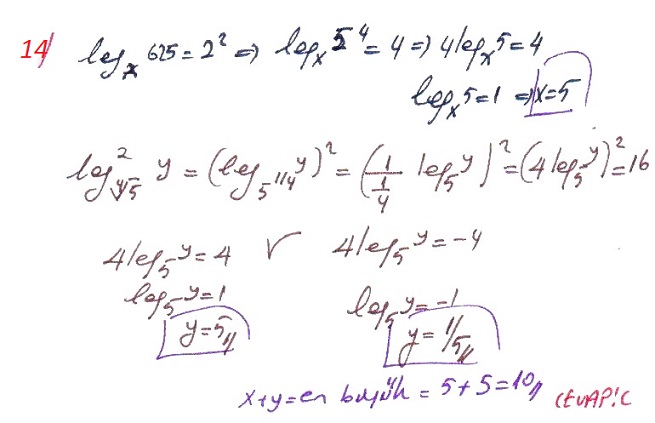 14/ log_x 625 = 2² ⇒ log_x 5⁴ = 4 ⇒ 4 log_x 5 = 4
log_x 5 = 1 ⇒ x = 5
log²_{⁴√5} y = (log_{5^{1/4}} y)² = (1/(1/4) log_5 y)² = (4 log_5 y)² = 16
4 log_5 y = 4 ∨ 4 log_5 y = -4
log_5 y = 1 log_5 y = -1
y = 5// y = 1/5//
x + y = en büyük = 5 + 5 = 10// CEVAP: C